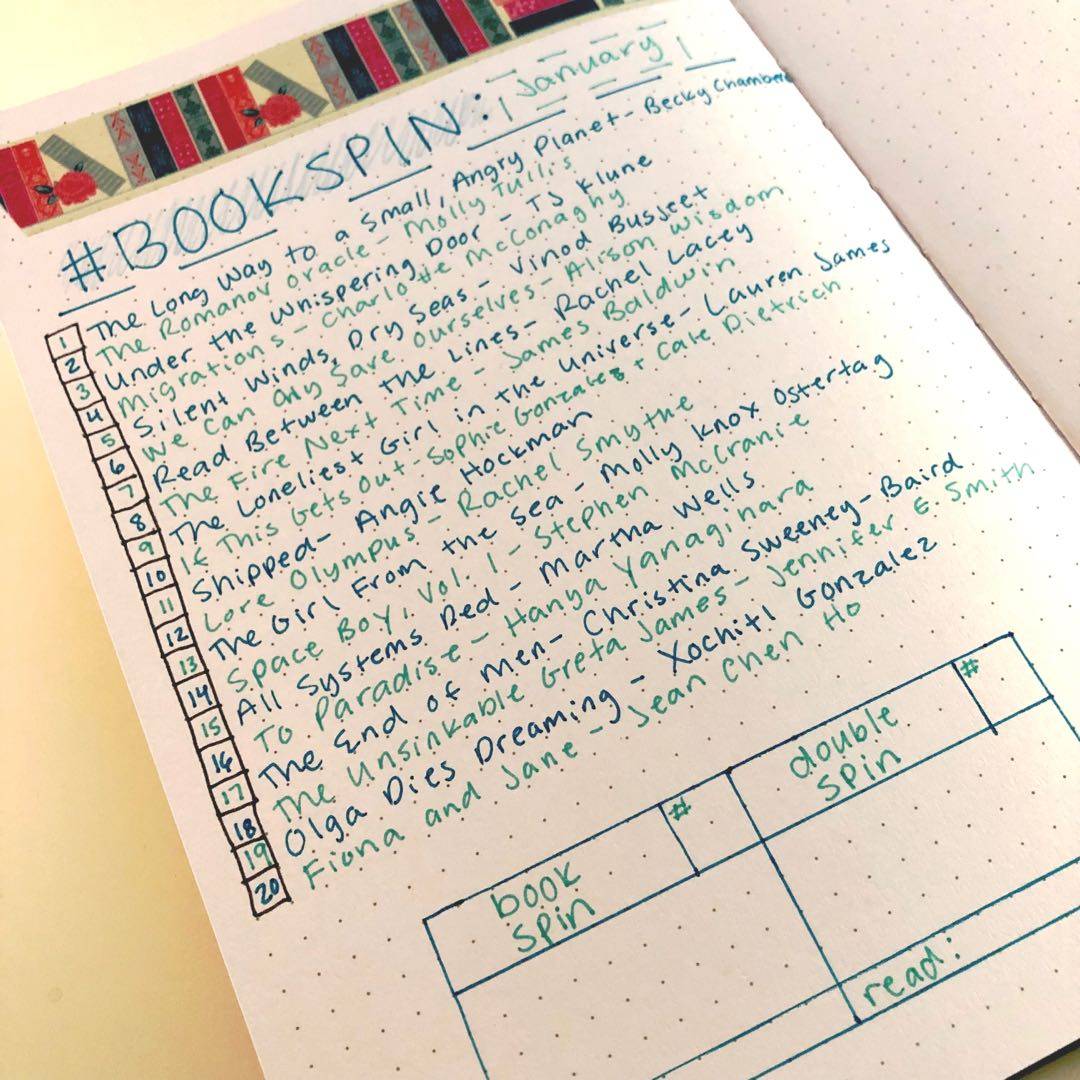 #BOOKSPIN: January
1 The Long Way to a Small, Angry Planet - Becky Chambers
2 The Romanov Oracle - Molly Tullis
3 Under the Whispering Door - TJ Klune
4 Migrations - Charlotte McConaghy
5 Silent Winds, Dry Seas - Vinod Busjeet
6 We Can Only Save Ourselves - Alison Wisdom
7 Read Between the Lines - Rachel Lacey
8 The Fire Next Time - James Baldwin
9 The Loneliest Girl in the Universe - Lauren James
10 If This Gets Out - Sophie Gonzales + Cale Dietrich
11 Shipped - Angie Hockman
12 Lore Olympus - Rachel Smythe
13 The Girl From the Sea - Molly Knox Ostertag
14 Space Boy, Vol. 1 - Stephen McCranie
15 All Systems Red - Martha Wells
16 To Paradise - Hanya Yanagihara
17 The End of Men - Christina Sweeney-Baird
18 The Unsinkable Greta James - Jennifer E. Smith
19 Olga Dies Dreaming - Xochitl Gonzalez
20 Fiona and Jane - Jean Chen Ho
book
spin
#
double
spin
#
read: